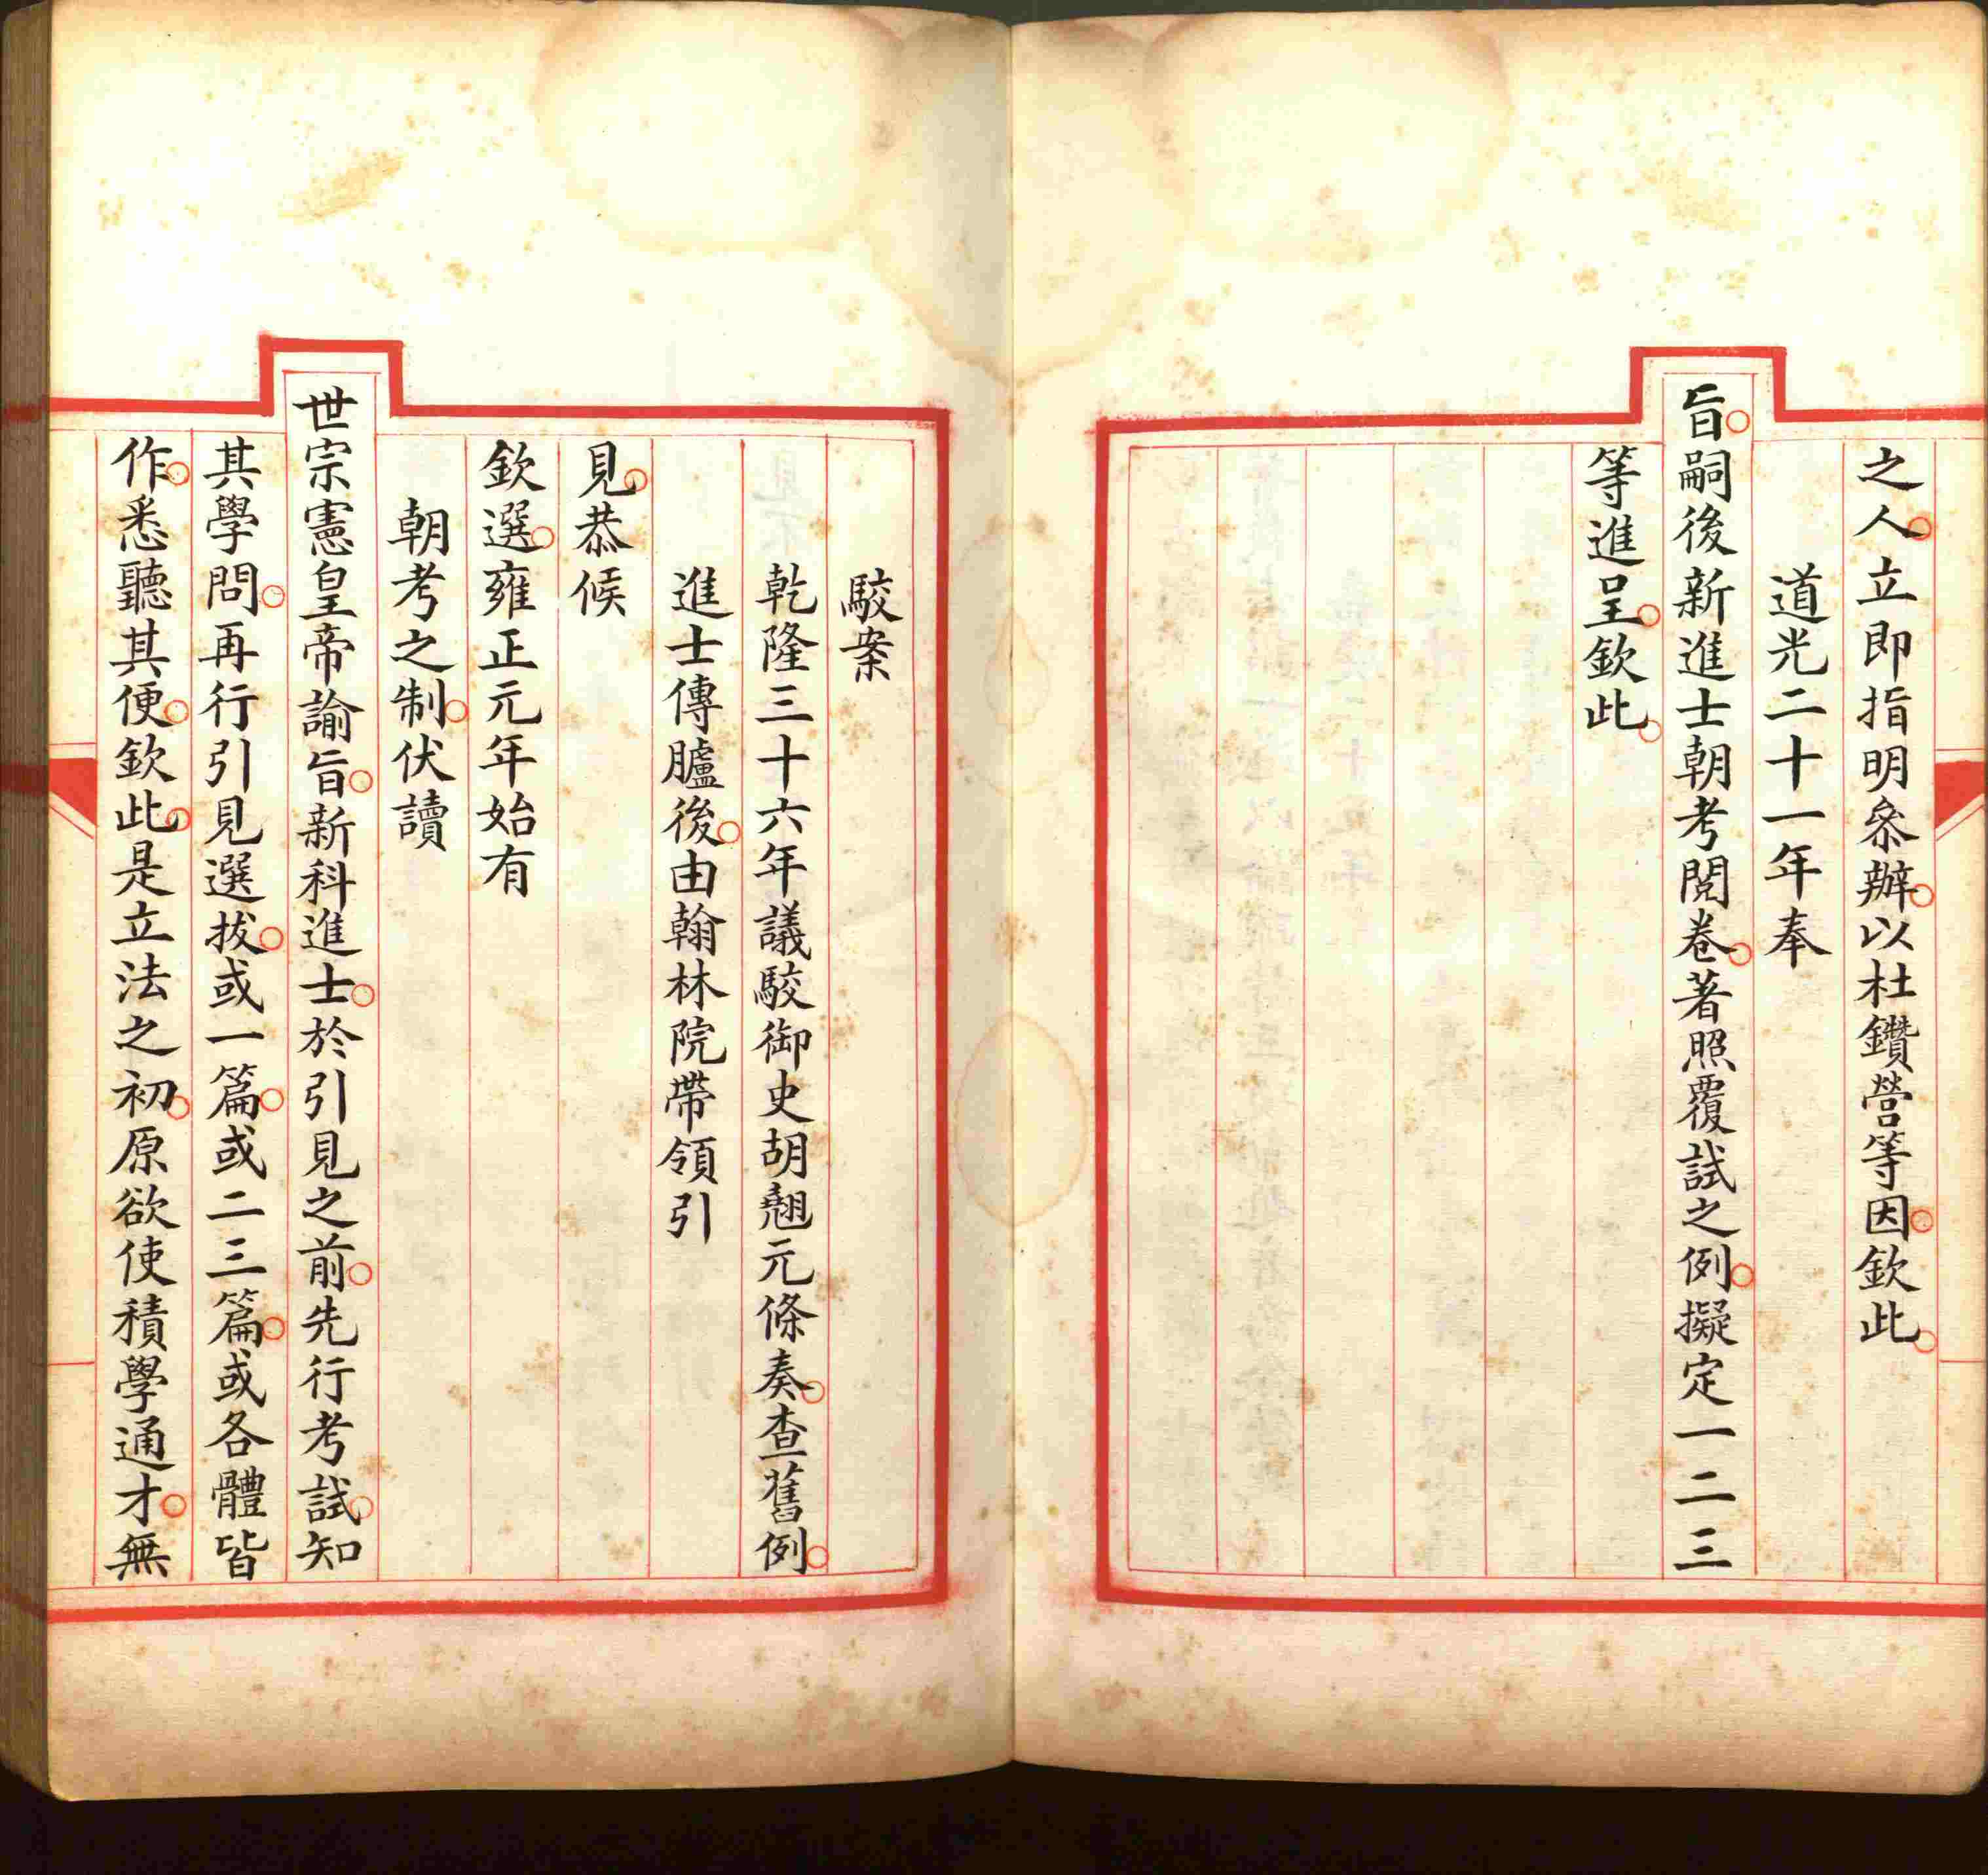 之人立即指明叅辦以杜鑽營等因欽此
道光二十一年奉
旨嗣後新進士朝考閱卷著照覆試之例擬定一二三
等進呈欽此
駮案
乾隆三十六年議駮御史胡翹元條奏查舊例
進士傳臚後由翰林院帶領引
見恭候
欽選雍正元年始有
朝考之制伏讀
世宗憲皇帝諭旨新科進士於引見之前先行考試知
其學問再行引見選拔或一篇或二三篇或各體皆
作悉聽其便欽此是立法之初原欲使積學通才無